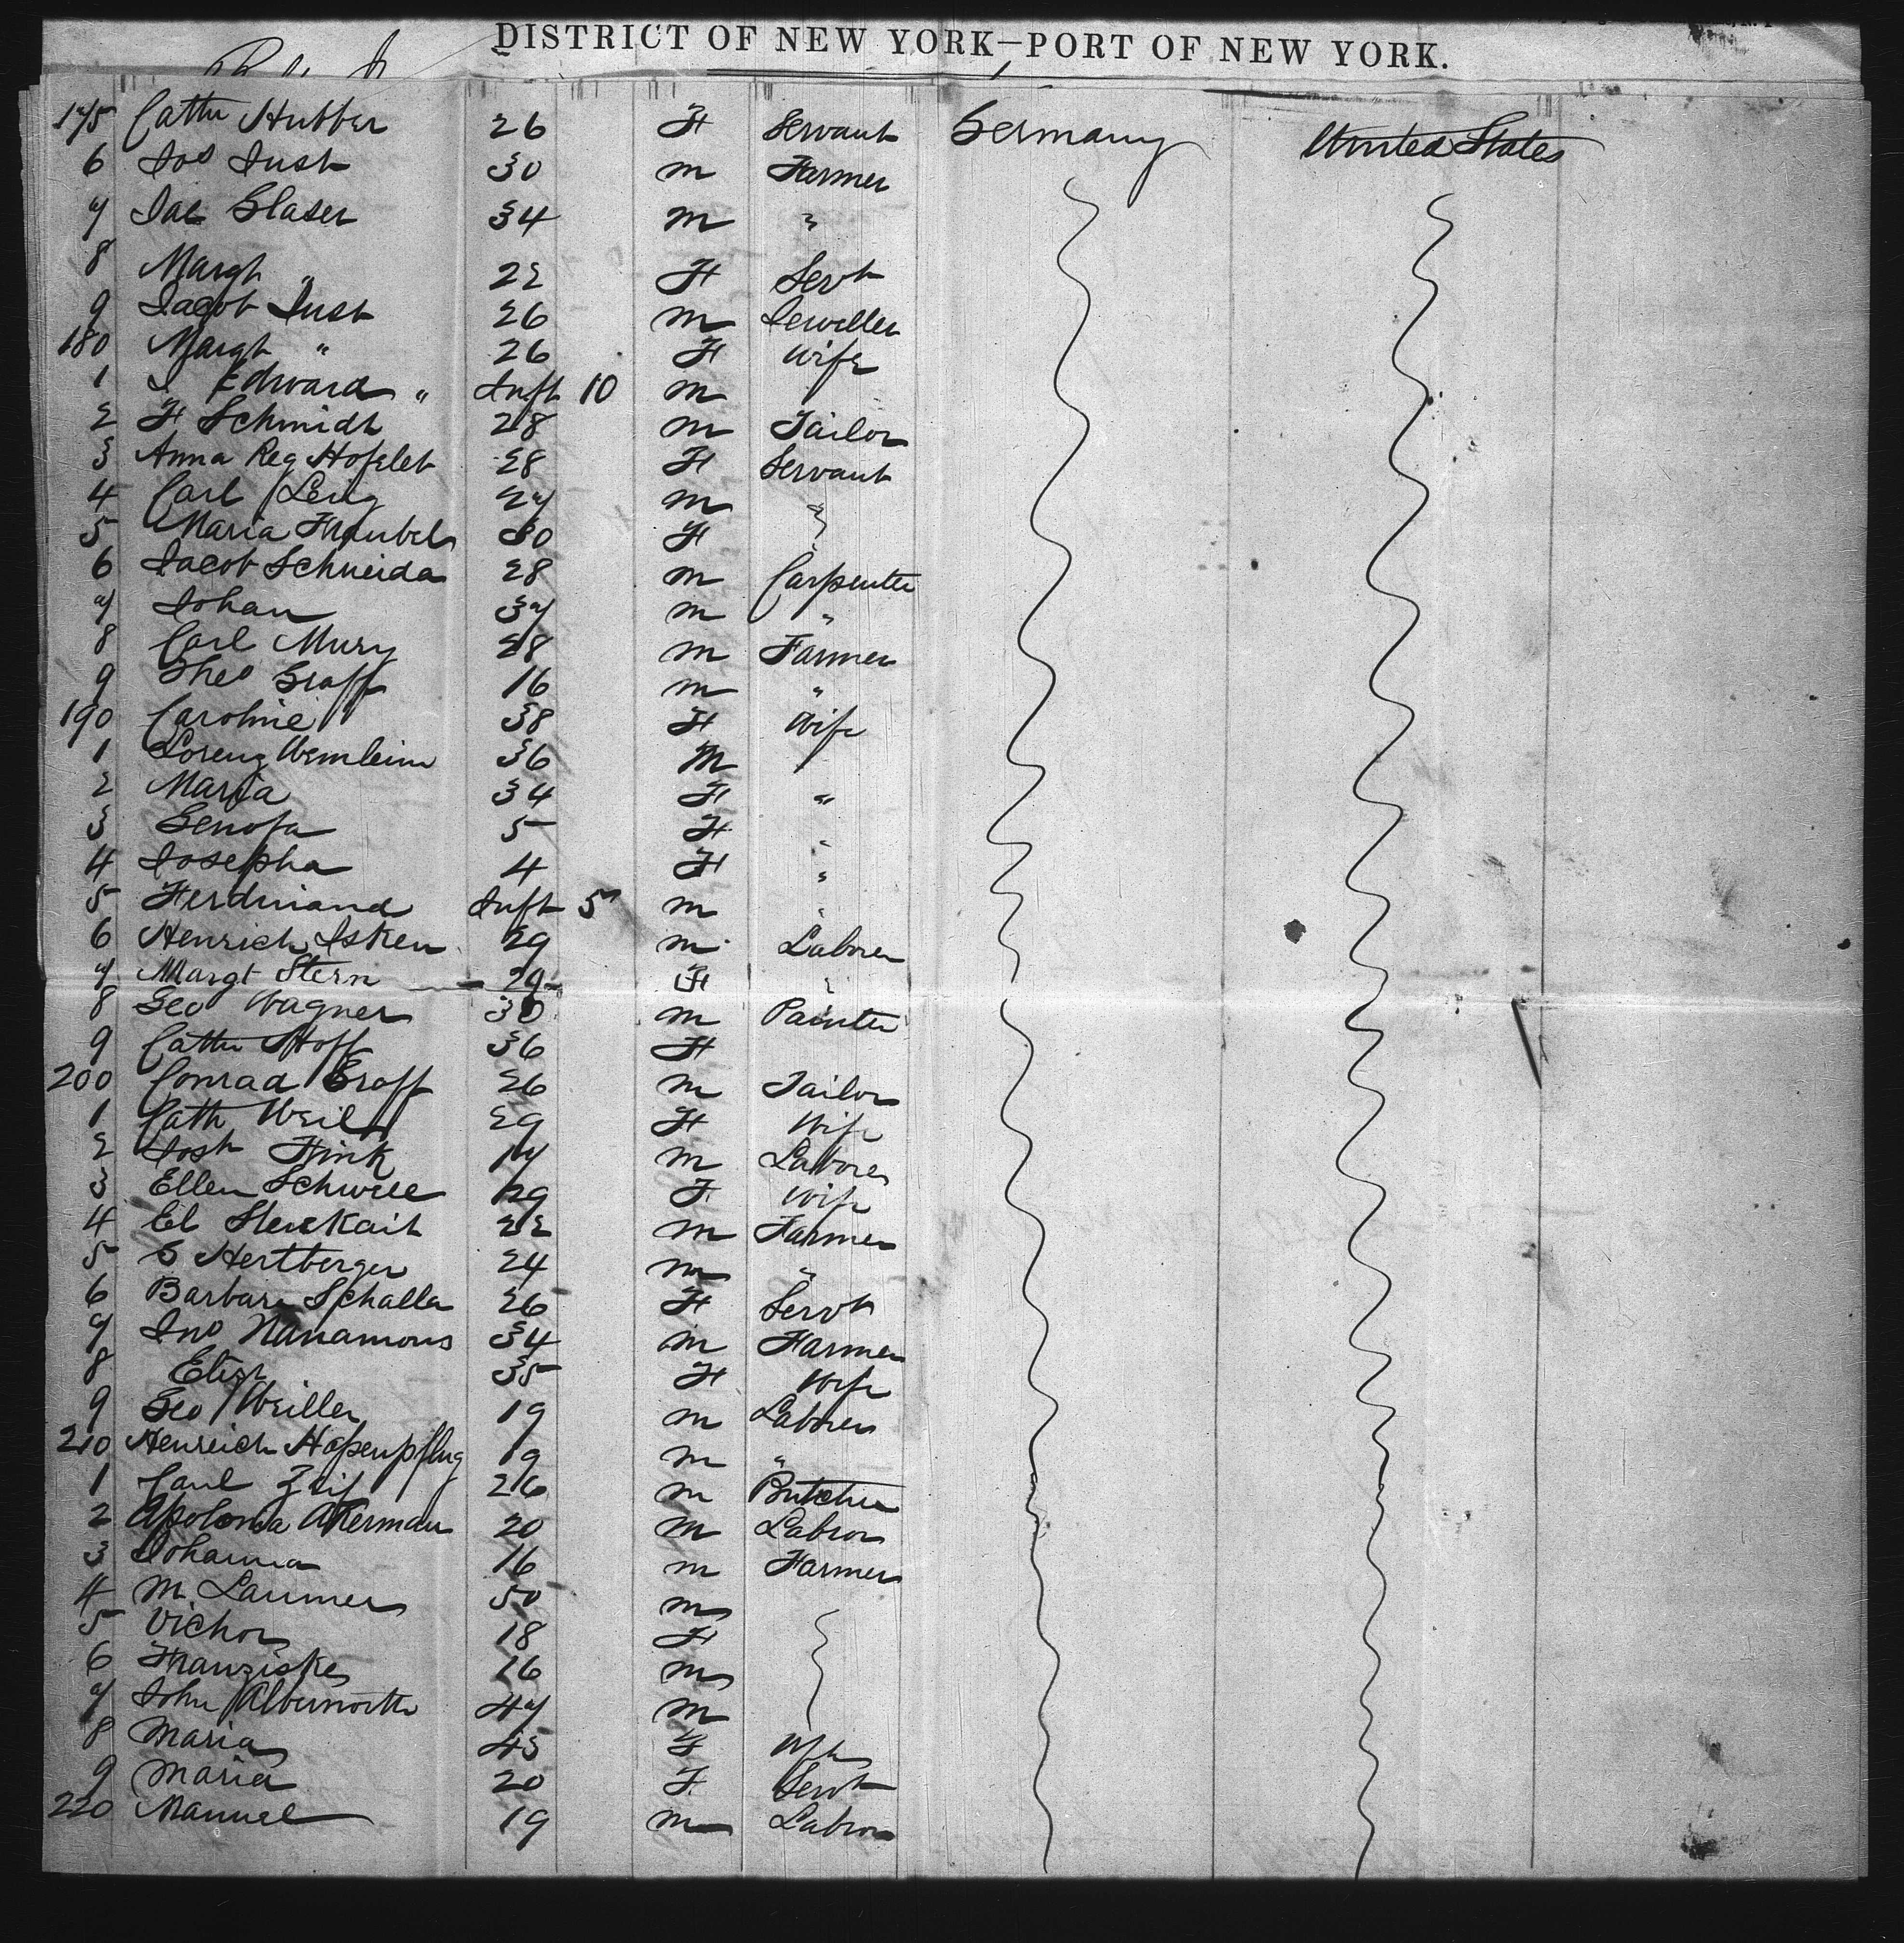 DISTRICT OF NEW YORK—PORT OF NEW YORK.
175 Cathe Hubber 26 F Servant Germany United States
6 Jos Just 30 m Farmer
7 Jac Glaser 34 m "
8 Margt " 22 F Servt
9 Jacob Just 26 m Jeweller
180 Margt " 26 F Wife
1 J Edward " Inft 10 m
2 F Schmidt 28 m Tailor
3 Anna Reg Hofelet 28 F Servant
4 Carl Leng 27 m
5 Maria Fraubel 30 F
6 Jacob Schneida 28 m Carpenter
7 Johan 37 m "
8 Carl Mury 28 m Farmer
9 Theo Graff 16 m "
190 Caroline 38 F Wife
1 Lorenz Wemleim 36 M
2 Maria 34 F "
3 Genofa 5 F "
4 Josepha 4 F "
5 Ferdinand Inft 5 m "
6 Henrich Isken 29 m Laborer
7 Margt Stern 29 F "
8 Geo Wagner 30 m Painter
9 Cathe Hoff 36 F
200 Conrad Graff 26 m Tailor
1 Cath Weil 29 F Wife
2 Josh Fink 17 m Laborer
3 Ellen Schwele 29 F Wife
4 El 22 m Farmer
5 G Hertberger 24 m "
6 Barbara Schalla 26 F Servt
7 Jno Nanamons 34 m Farmer
8 Eliz 35 F Wife
9 Geo Weiller 19 m Laborer
210 Henreich Hopenpflug 19 m "
1 Carl Zeif 26 m Butcher
2 Apolonia Akerman 20 m Labror
3 Johanna 16 m Farmer
4 M. Larimer 50 m
5 Victor 18 F
6 Franziska 16 m
7 John 47 m
8 Maria 45 F Wife
9 Maria 20 F. Servt
220 Manuel 19 m Labror